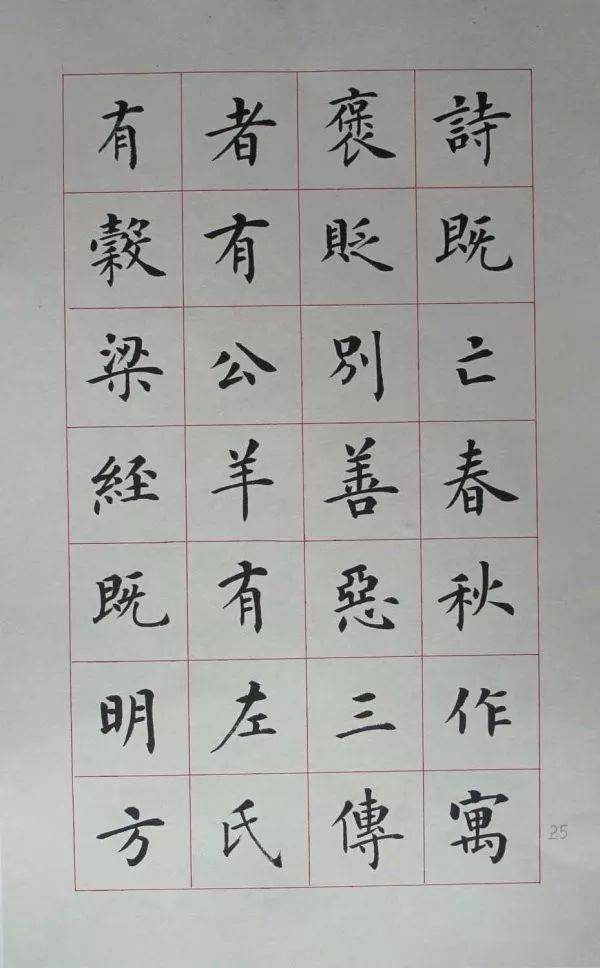 詩既亡春秋作寓
褒貶別善惡三傳
者有公羊有左氏
有穀梁經既明方
25